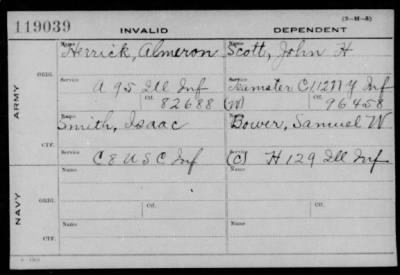 (3-M-8)
119039 INVALID DEPENDENT
Name Herrick, Almeron Name Scott, John H
ORIG.
Service Service
A 95 Ill Inf Teamster C 112 N Y Inf
Ctf. 82688 (W) Ctf. 96458
ARMY
Name Smith, Isaac Name Bower, Samuel W
CTF.
Service C 8 U S C Inf Service (C) H 129 Ill Inf
Name Name
ORIG.
Service Ctf. Service Ctf.
NAVY
Name Name
CTF.
Service Service